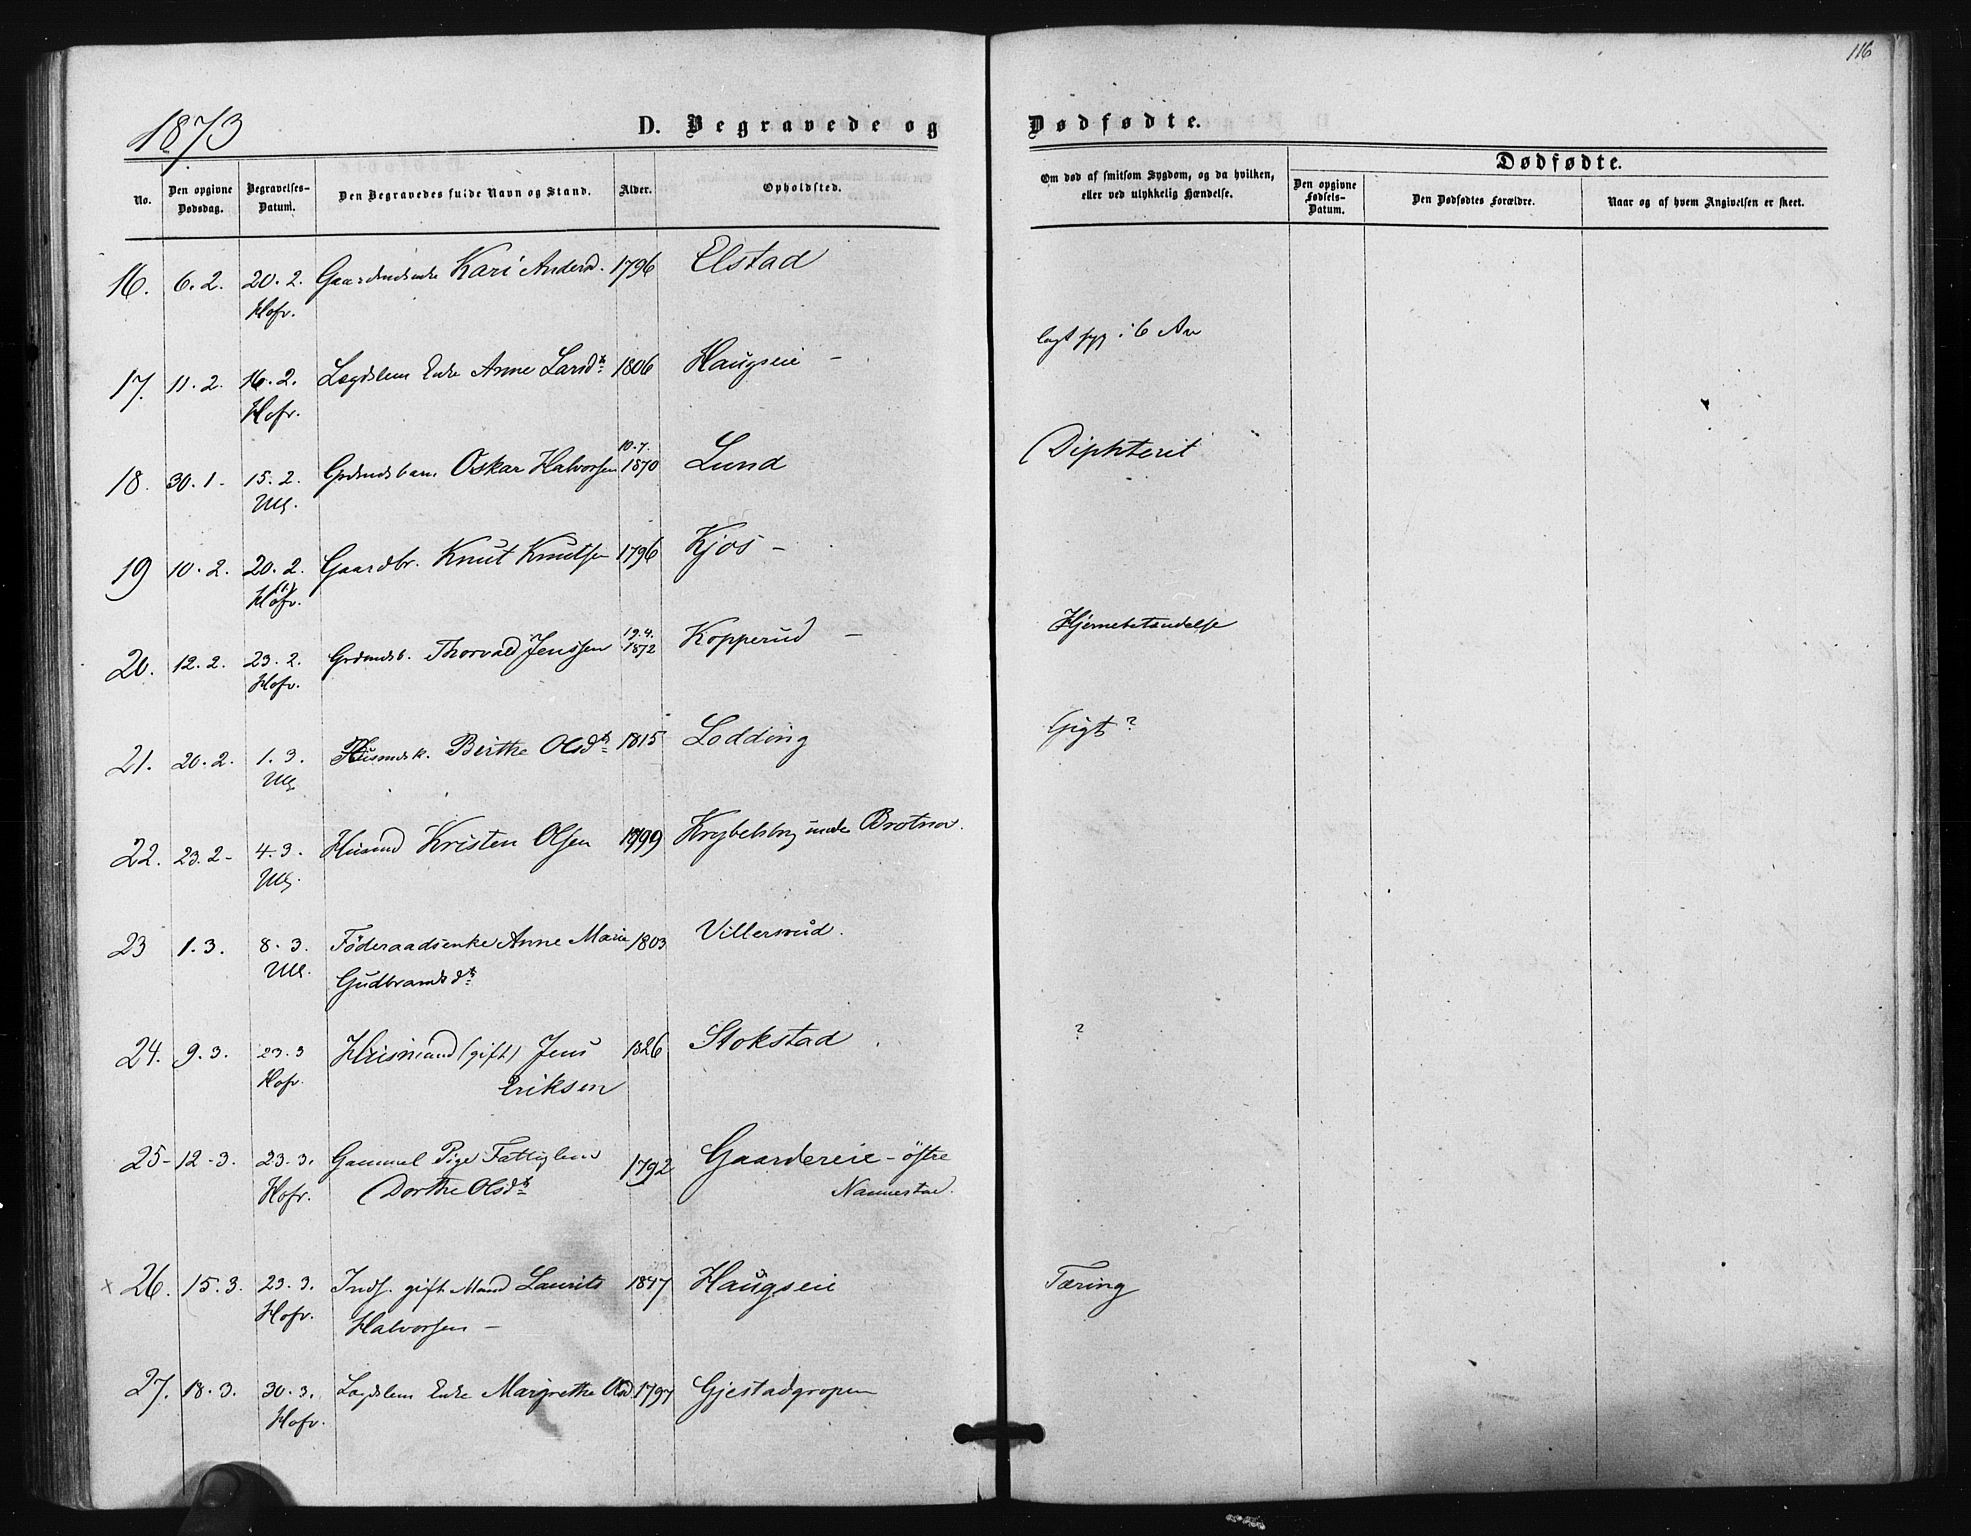 116
1873
D. Begravede og Dødfødte.
Dødfødte.
No.
Den opgivne Dødsdag.
Begravelses-Datum.
Den Begravedes fulde Navn og Stand.
Alder.
Opholdsted.
Om død af smitsom Sygdom, og da hvilken, eller ved ulykkelig Hændelse.
Den opgivne Fødsels-Datum.
Den Dødfødtes Forældre.
Naar og af hvem Angivelsen er skeet.
16. 6. 2. 20. 2. Kari Andersd. 1796 Elstad
Hofv.
17. 11. 2. 16. 2. Lægdslem Enke Anne Larsdt 1806 Haugseie – lagt syg i 6 Aar
Hofv.
10. 7.
18. 30. 1. 15. 2. Grdmdsbarn Oskar Halvorsen 1870 Lund Diphterit
Ull.
19 10. 2. 20. 2. Gaardbr. Knut Knutsen 1796 Kjos –
Hofv.
19. 4.
20. 12. 2. 23. 2. Grdmdsb. Thorvald Jenssen 1872 Kopperud – Hjernebetændelse
Hofv.
21. 20. 2. 1. 3. Husmdsk. Birthe Olsdt 1815 Lodding Gigt ?
Ull.
22. 23. 2 - 4. 3. Husmd Kristen Olsen 1799 Krybelsby under Brotnov.
Ull.
23 1. 3. 8. 3. Föderaadsenke Anne Marie 1803 Villersrud.
Ull. Gudbrandsdt
24. 9. 3. 23. 3 Husmand (gift) Jens 1826 Stokstad ?
Hofv. Eriksen
25 - 12 - 3. 23. 3. Gammel Pige Fattiglem 1792 Gaardereie – östre
Hofv. Dorthe Olsdt Nannestad.
x 26. 15. 3. 23. 3. Inds. gift Mand Laurits 1847 Haugseie Tæring
Hofv. Halvorsen –
27. 18. 3. 30. 3. Lægdslem Enke Margrethe Olsd 1797 Gjestadgropen
Hofv.